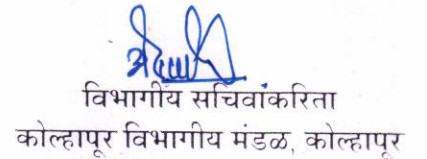 विभागीय सचिवांकरिता
कोल्हापूर विभागीय मंडळ, कोल्हापूर